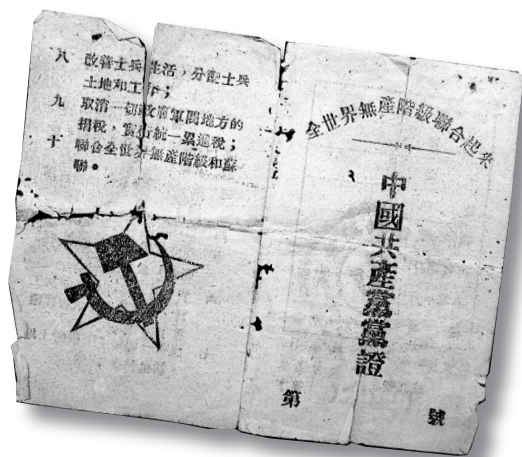 八 改善士兵生活，分配士兵
土地和工作；
九 取消一切政府軍閥地方的
捐稅，實行統一累進稅；
十 聯合全世界無產階級和蘇
聯。
全世界無產階級聯合起來
中國共產黨黨證
第 號